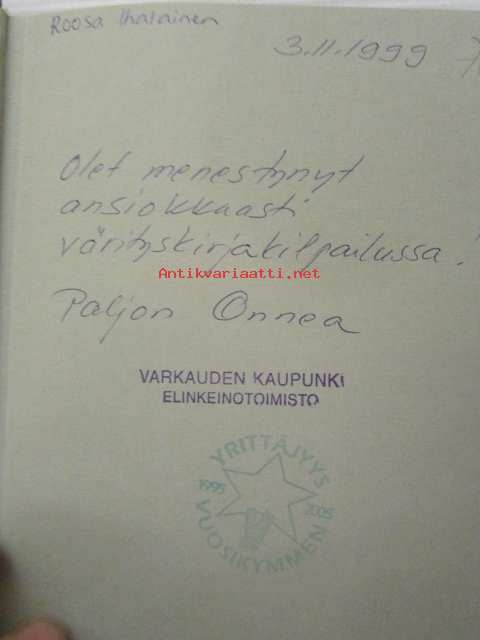 Roosa Ihalainen
3.11.1999
Olet menestynyt
ansiokkaasti
värityskirjakilpailussa!
Antikvariaatti.net
Paljon Onnea
VARKAUDEN KAUPUNKI
ELINKEINOTOIMISTO
YRITTÄJYYS
1995 2005
VUOSIKYMMEN